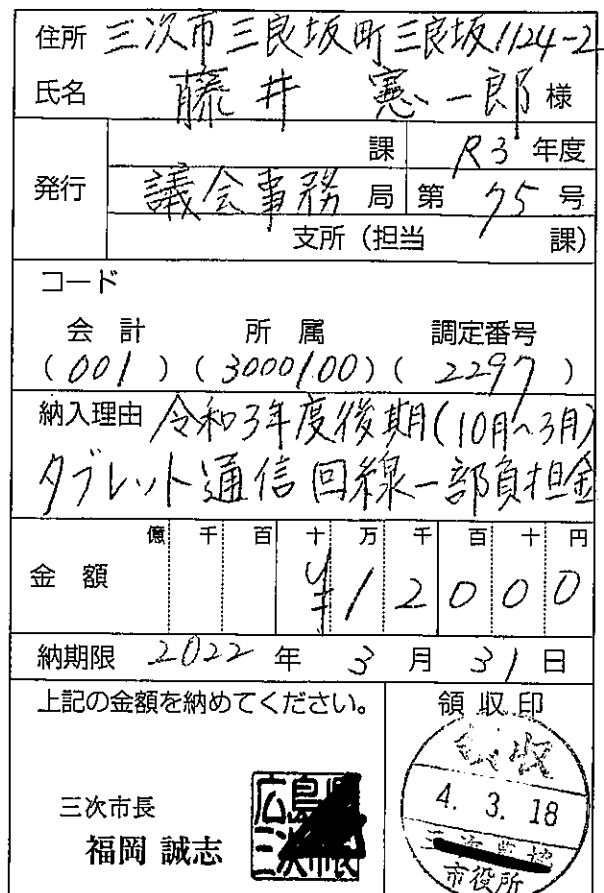 住所 三次市三良坂町三良坂1124-2
氏名 藤井 憲一郎 様
発行
課 R3 年度
議会事務 局 第 75 号
支所（担当 課）
コード
会計 所属 調定番号
(001) (3000100) (2297)
納入理由 令和3年度後期(10月〜3月)
タブレット通信回線一部負担金
億 千 百 十 万 千 百 十 円
金額 ¥12000
納期限 2022 年 3 月 31 日
上記の金額を納めてください。
領収印
領収
4. 3. 18
市役所
三次市長
福岡 誠志
広島県
三次市長